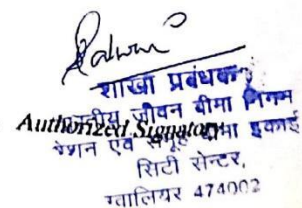 शाखा प्रबंधक
भारतीय जीवन बीमा निगम
Authorized Signatory
पेंशन एवं समूह बीमा इकाई
सिटी सेन्टर,
ग्वालियर 474002